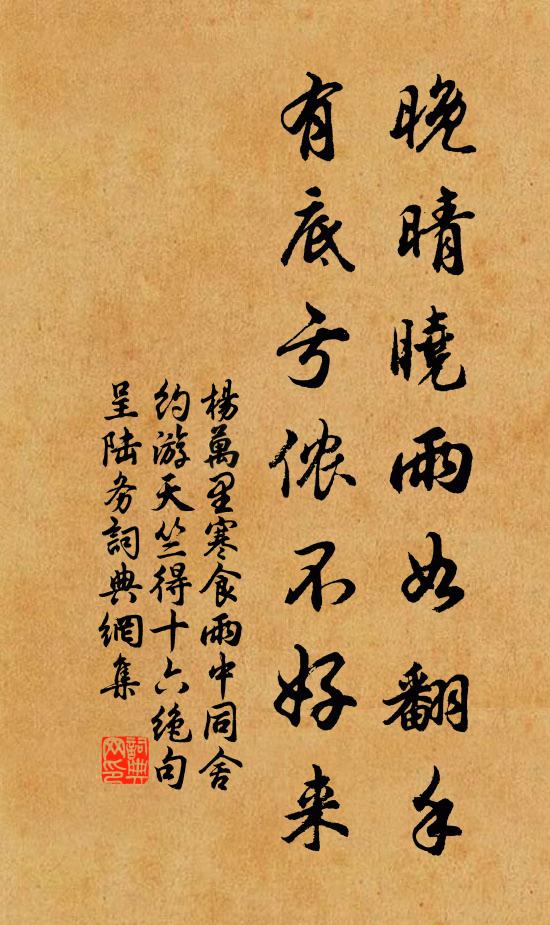 晚晴曉雨如翻手
有底亏侬不好来
楊萬里寒食雨中同舍
约游天竺得十六绝句
呈陆务詞典網集
詞典网印